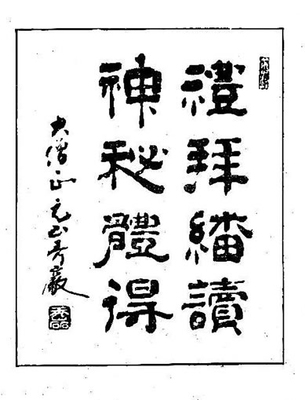 禮拜繙讀
神秘體得
大僧正